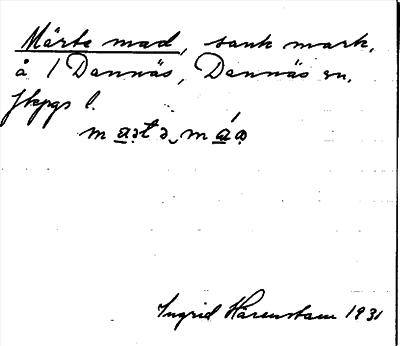 Märte mad, sank mark,
å 1 Dannäs, Dannäs sn,
Jkpgs l.
Ingrid Härenstam 1931